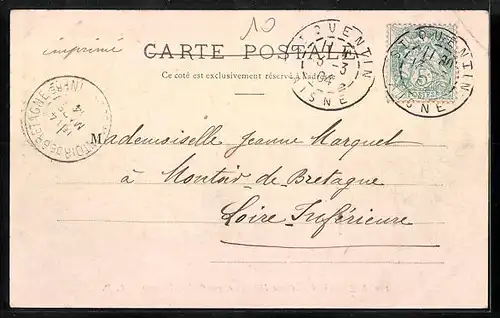 10
imprimé
CARTE POSTALE
Ce côté est exclusivement réservé à l'adresse
ST QUENTIN
AISNE
ST QUENTIN
AISNE
MONTOIR DE BRETAGNE
Mademoiselle Jeanne Marquet
à Montoir-de-Bretagne
Loire Inférieure